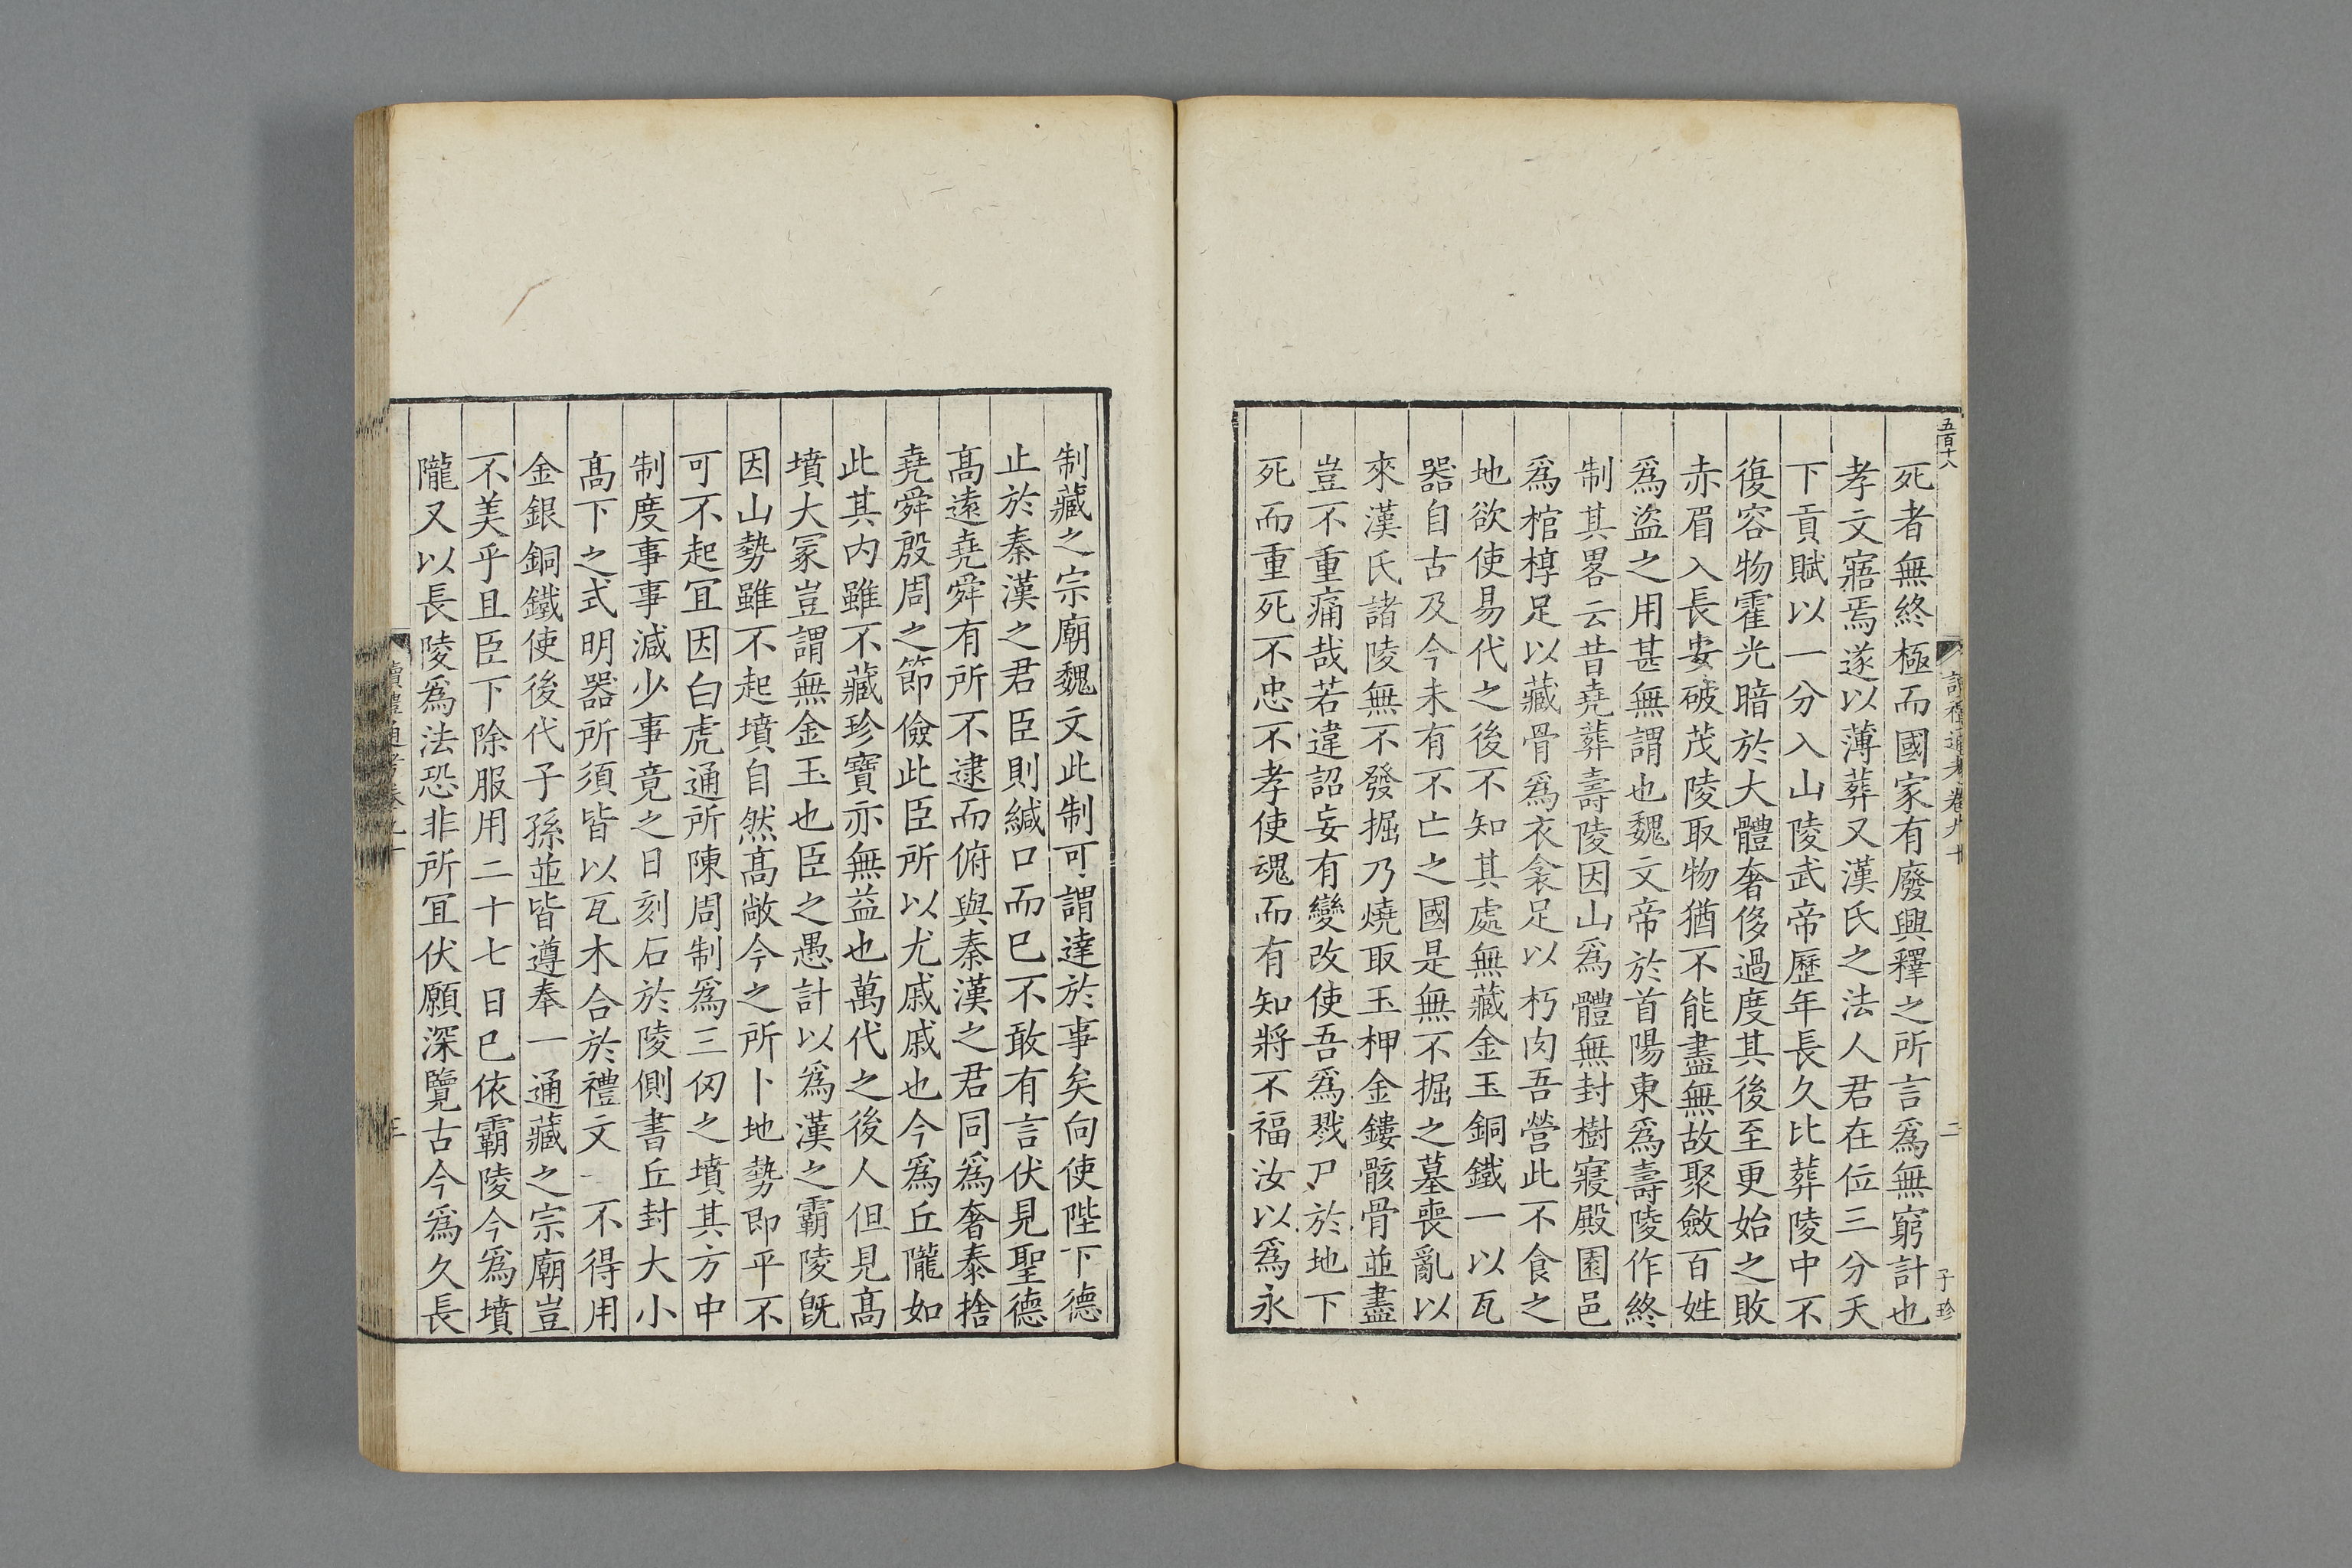 五百十八
讀禮通考卷九十
二
子珍
死者無終極而國家有廢興釋之所言爲無窮計也
孝文寤焉遂以薄葬又漢氏之法人君在位三分天
下貢賦以一分入山陵武帝歷年長久比葬陵中不
復容物霍光暗於大體奢侈過度其後至更始之敗
赤眉入長安破茂陵取物猶不能盡無故聚斂百姓
爲盜之用甚無謂也魏文帝於首陽東爲壽陵作終
制其畧云昔堯葬壽陵因山爲體無封樹寢殿園邑
爲棺椁足以藏骨爲衣衾足以朽肉吾營此不食之
地欲使易代之後不知其處無藏金玉銅鐵一以瓦
器自古及今未有不亡之國是無不掘之墓喪亂以
來漢氏諸陵無不發掘乃燒取玉柙金鏤骸骨並盡
豈不重痛哉若違詔妄有變改使吾爲戮尸於地下
死而重死不忠不孝使魂而有知將不福汝以爲永
制藏之宗廟魏文此制可謂達於事矣向使陛下德
止於秦漢之君臣則緘口而已不敢有言伏見聖德
髙遠堯舜有所不逮而俯與秦漢之君同爲奢泰捨
堯舜殷周之節儉此臣所以尤戚戚也今爲丘隴如
此其内雖不藏珍寶亦無益也萬代之後人但見髙
墳大冡豈謂無金玉也臣之愚計以爲漢之霸陵旣
因山勢雖不起墳自然髙敞今之所卜地勢即平不
可不起宜因白虎通所陳周制爲三仞之墳其方中
制度事事減少事竟之日刻石於陵側書丘封大小
髙下之式明器所須皆以瓦木合於禮文一不得用
金銀銅鐵使後代子孫並皆遵奉一通藏之宗廟豈
不美乎且臣下除服用二十七日已依霸陵今爲墳
隴又以長陵爲法恐非所宜伏願深覽古今爲久長